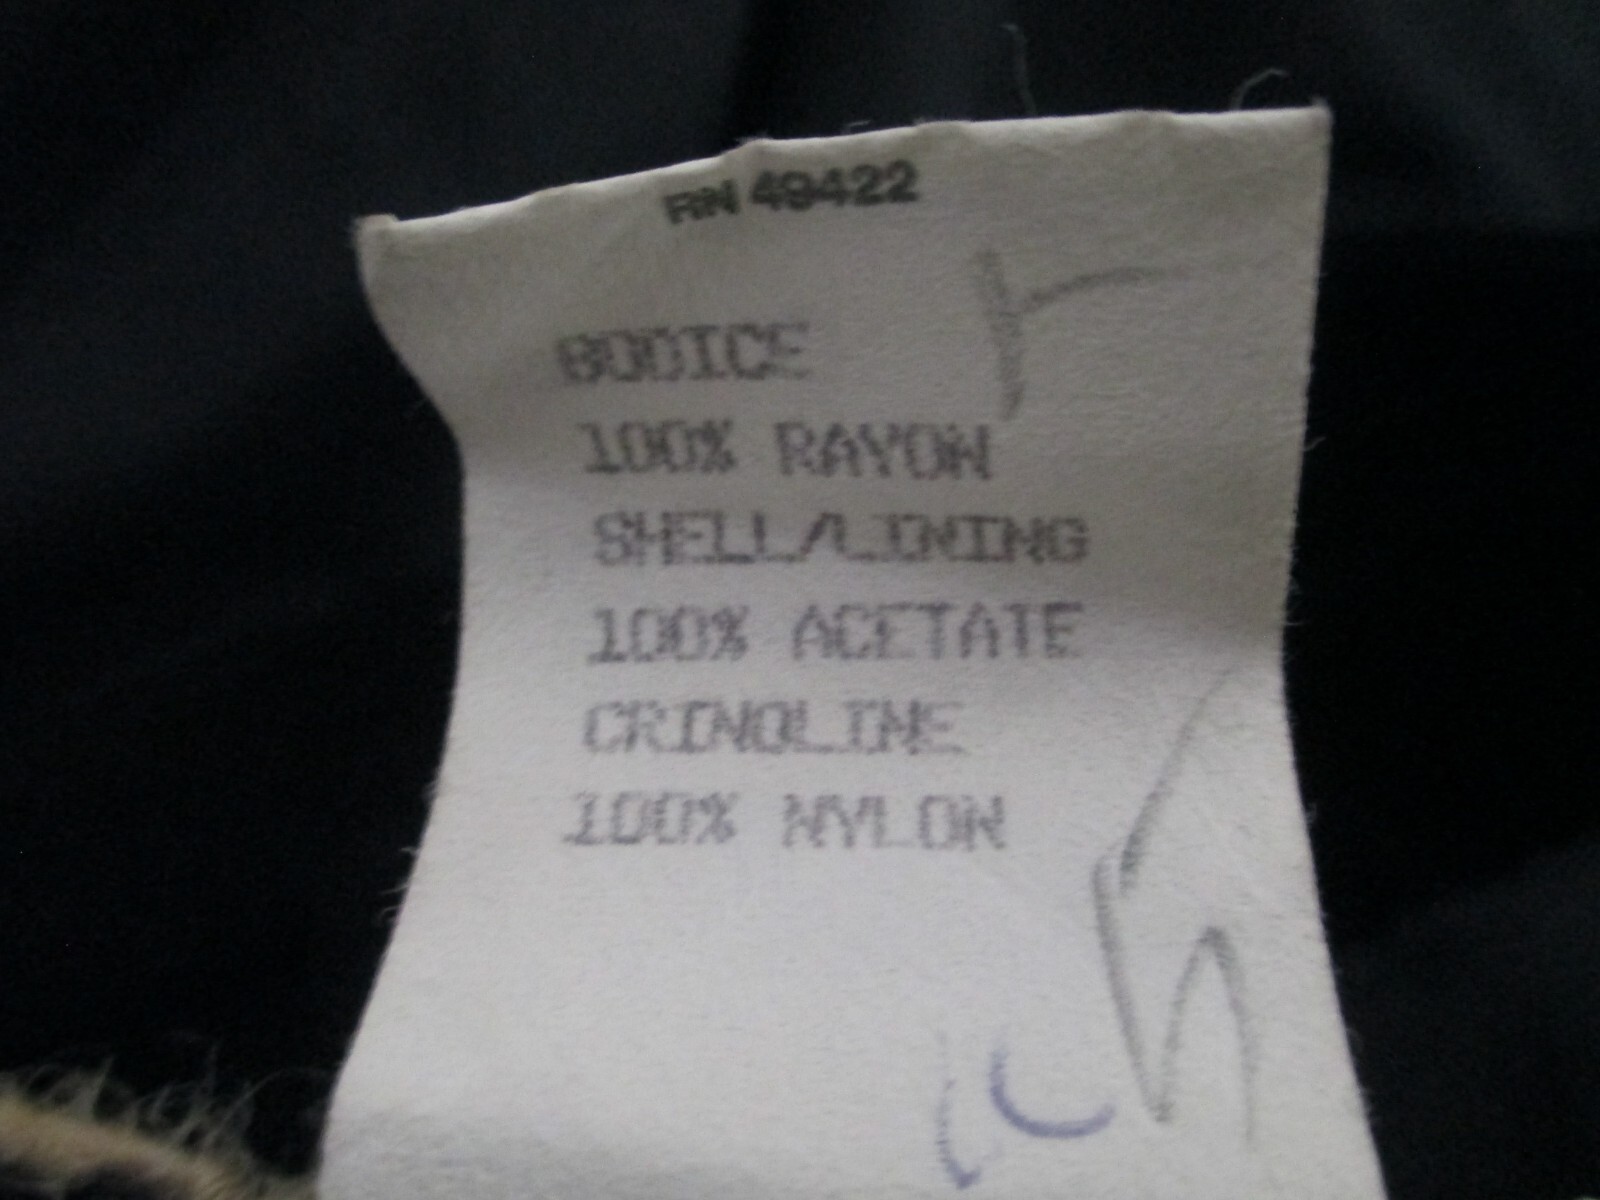 RN 49422
BODICE
100% RAYON
SHELL/LINING
100% ACETATE
CRINOLINE
100% NYLON